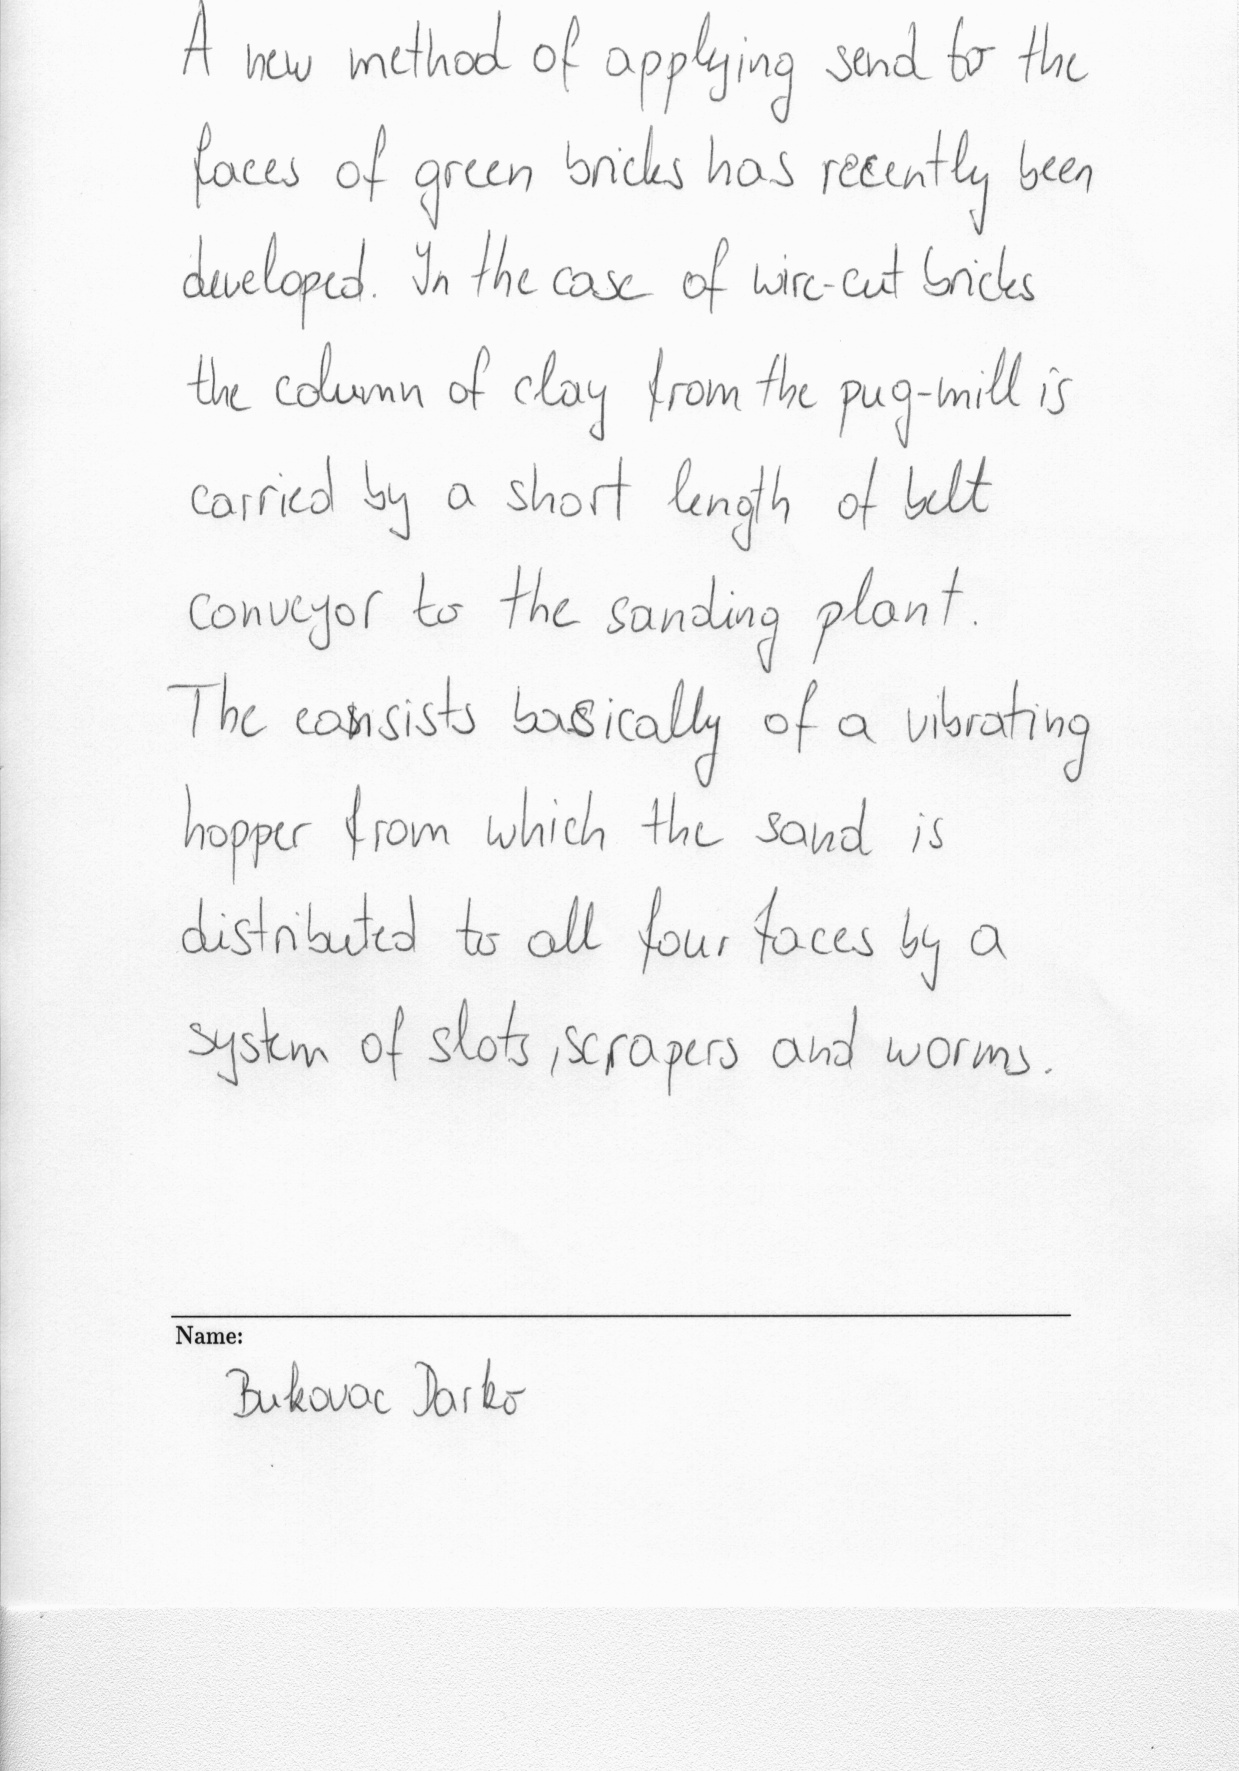 A new method of applying send to the
faces of green bricks has recently been
developed. In the case of wire-cut bricks
the column of clay from the pug-mill is
carried by a short length of belt
conveyor to the sanding plant.
The consists basically of a vibrating
hopper from which the sand is
distributed to all four faces by a
system of slots, scrapers and worms.
Name:
Bukovac Darko